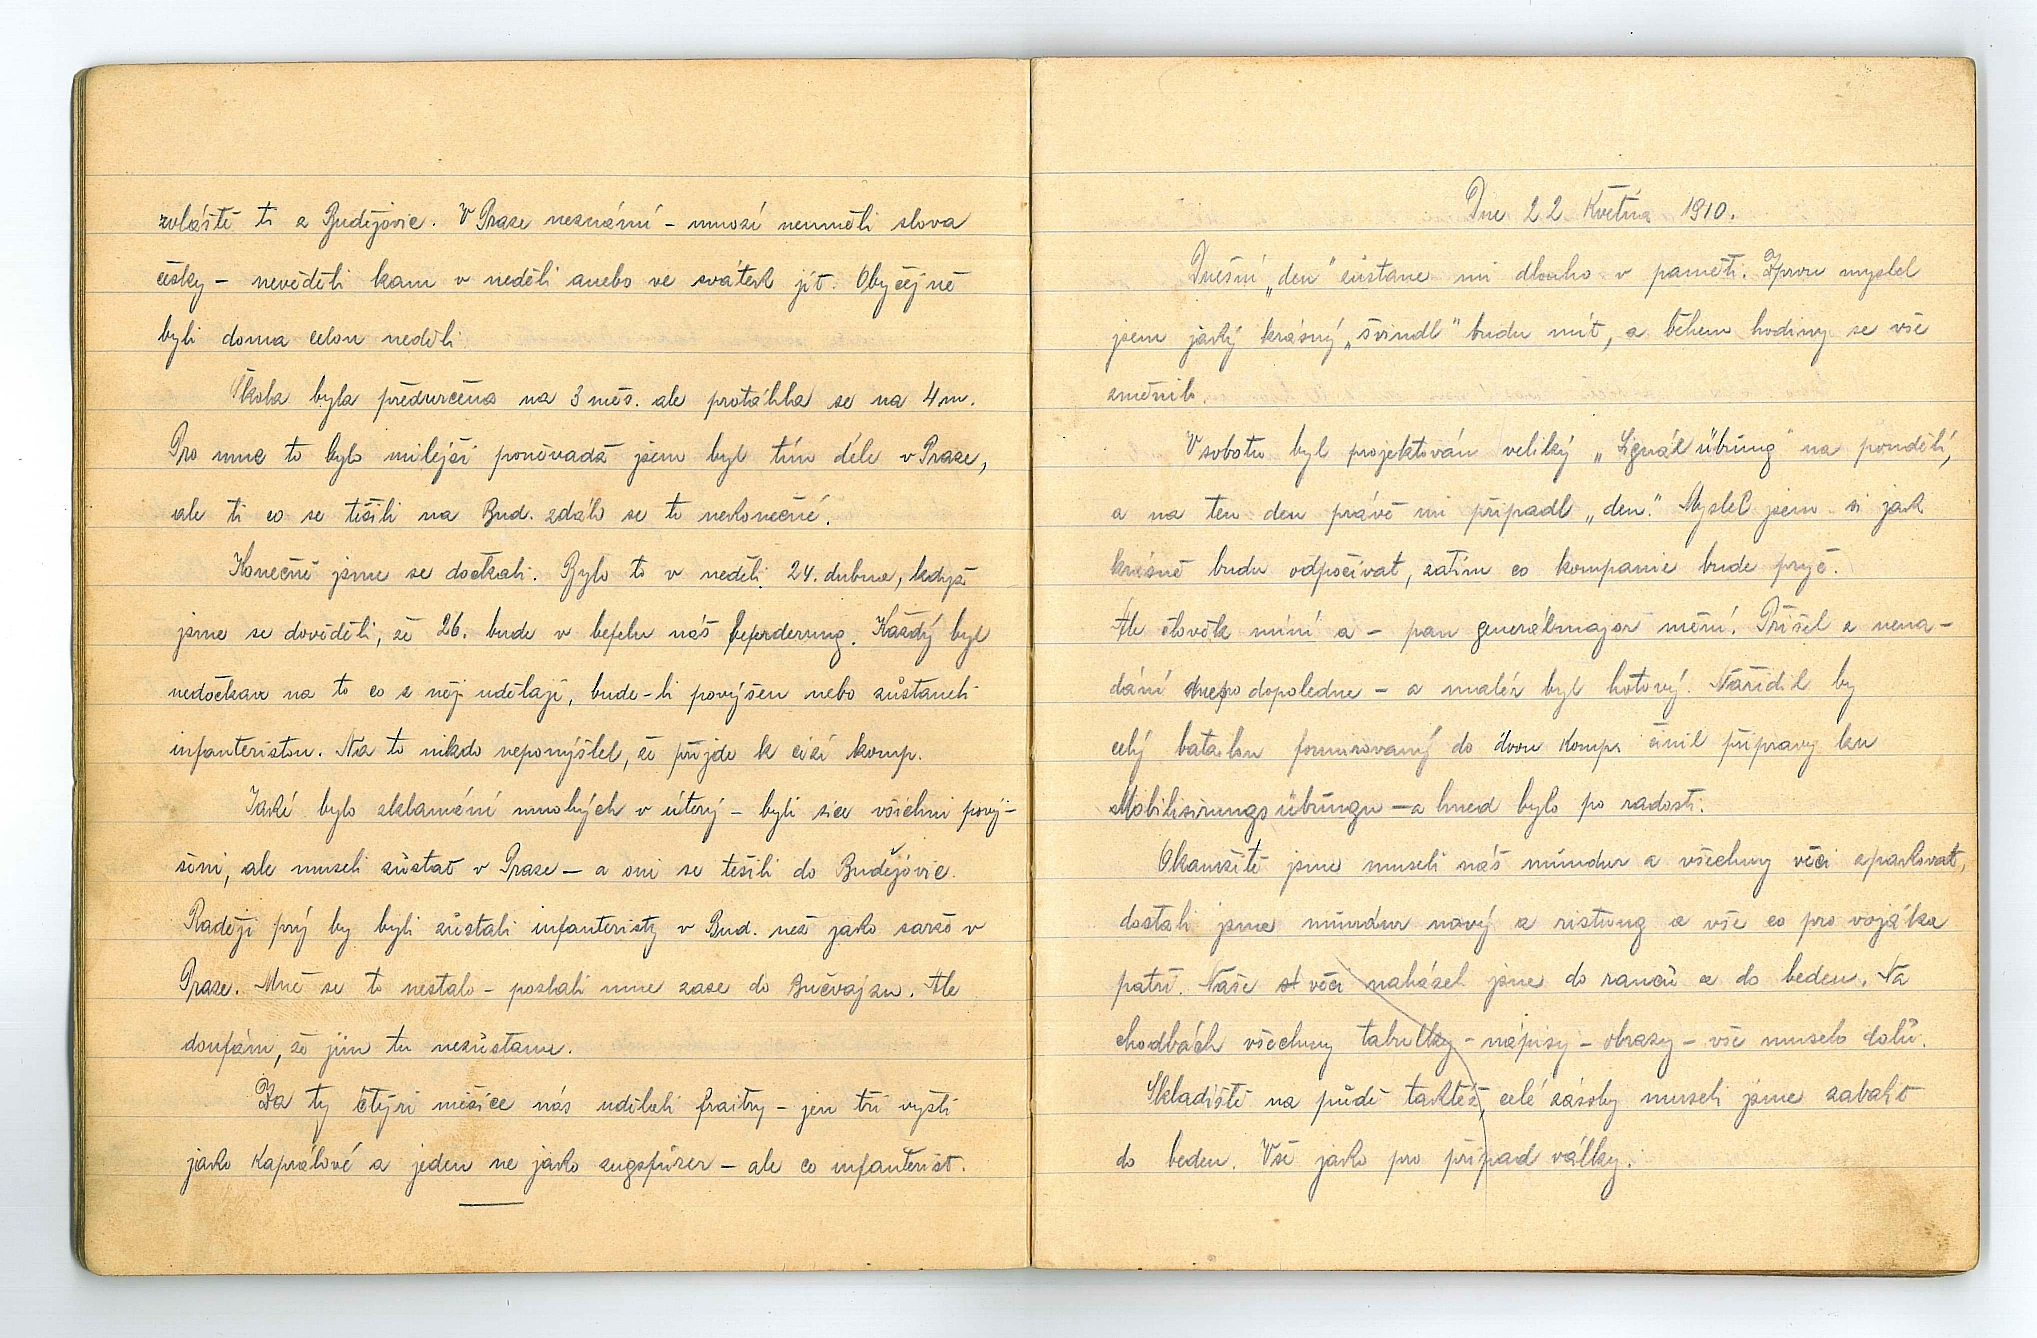 zvláště ti z Budějovic. V Praze neznámí – mnozí neuměli slova
česky – nevěděli kam v neděli anebo ve svátek jít. Obyčejně
byli doma celou neděli.
Škola byla předurčena na 3 měs. ale protáhla se na 4 m.
Pro mne to bylo milejší poněvadž jsem byl tím déle v Praze,
ale ti co se těšili na Bud. zdálo se to nekonečné.
Konečně jsme se dočkali. Bylo to v neděli 24. dubna, když
jsme se dověděli, že 26. bude v befelu náš beferderung. Každý byl
nedočkav na to co z něj udělají, bude-li povýšen nebo zůstane-li
infanteristou. Na to nikdo nepomýšlel, že přijde k cizí komp.
Jaké bylo zklamání mnohých v úterý – byli sice všichni pový-
šeni, ale museli zůstat v Praze – a oni se těšili do Budějovic.
Raději prý by byli zůstali infanteristy v Bud. než jako šarže v
Praze. Mně se to nestalo – poslali mne zase do Bučvajzu. Ale
doufám, že jim tu nezůstanu.
Za ty čtyři měsíce nás udělali frajtry – jen tři vyšli
jako kaprálové a jeden ne jako zugsfürer – ale co infanterist.
Dne 22 Května 1910.
Dnešní „den" zůstane mi dlouho v paměti. Zprvu myslel
jsem jaký krásný „švindl" budu mít, a během hodiny se vše
změnilo.
V sobotu byl projektován veliký „Signál übüng" na pondělí,
a na ten den právě mi připadl „den". Myslel jsem si jak
krásně budu odpočívat, zatím co kompanie bude pryč.
Ale člověk míní a – pan generálmajor mění. Přišel z nena-
dání dopoledne – a malér byl hotový. Nařídil by
celý batalion formirovaný do dvou komp. činil přípravy ku
Mobilisirungsübüngu – a hned bylo po radosti.
Okamžitě jsme museli náš mundur a všechny věci zpakovat,
dostali jsme mundur nový a ristung a vše co pro vojáka
patří. Naše věci naházel jsme do ranců a do beden. Na
chodbách všechny tabulky – nápisy – obrazy – vše muselo dolů.
Skladiště na půdě taktéž, celé zásoby museli jsme zabalit
do beden. Vše jako pro případ války.